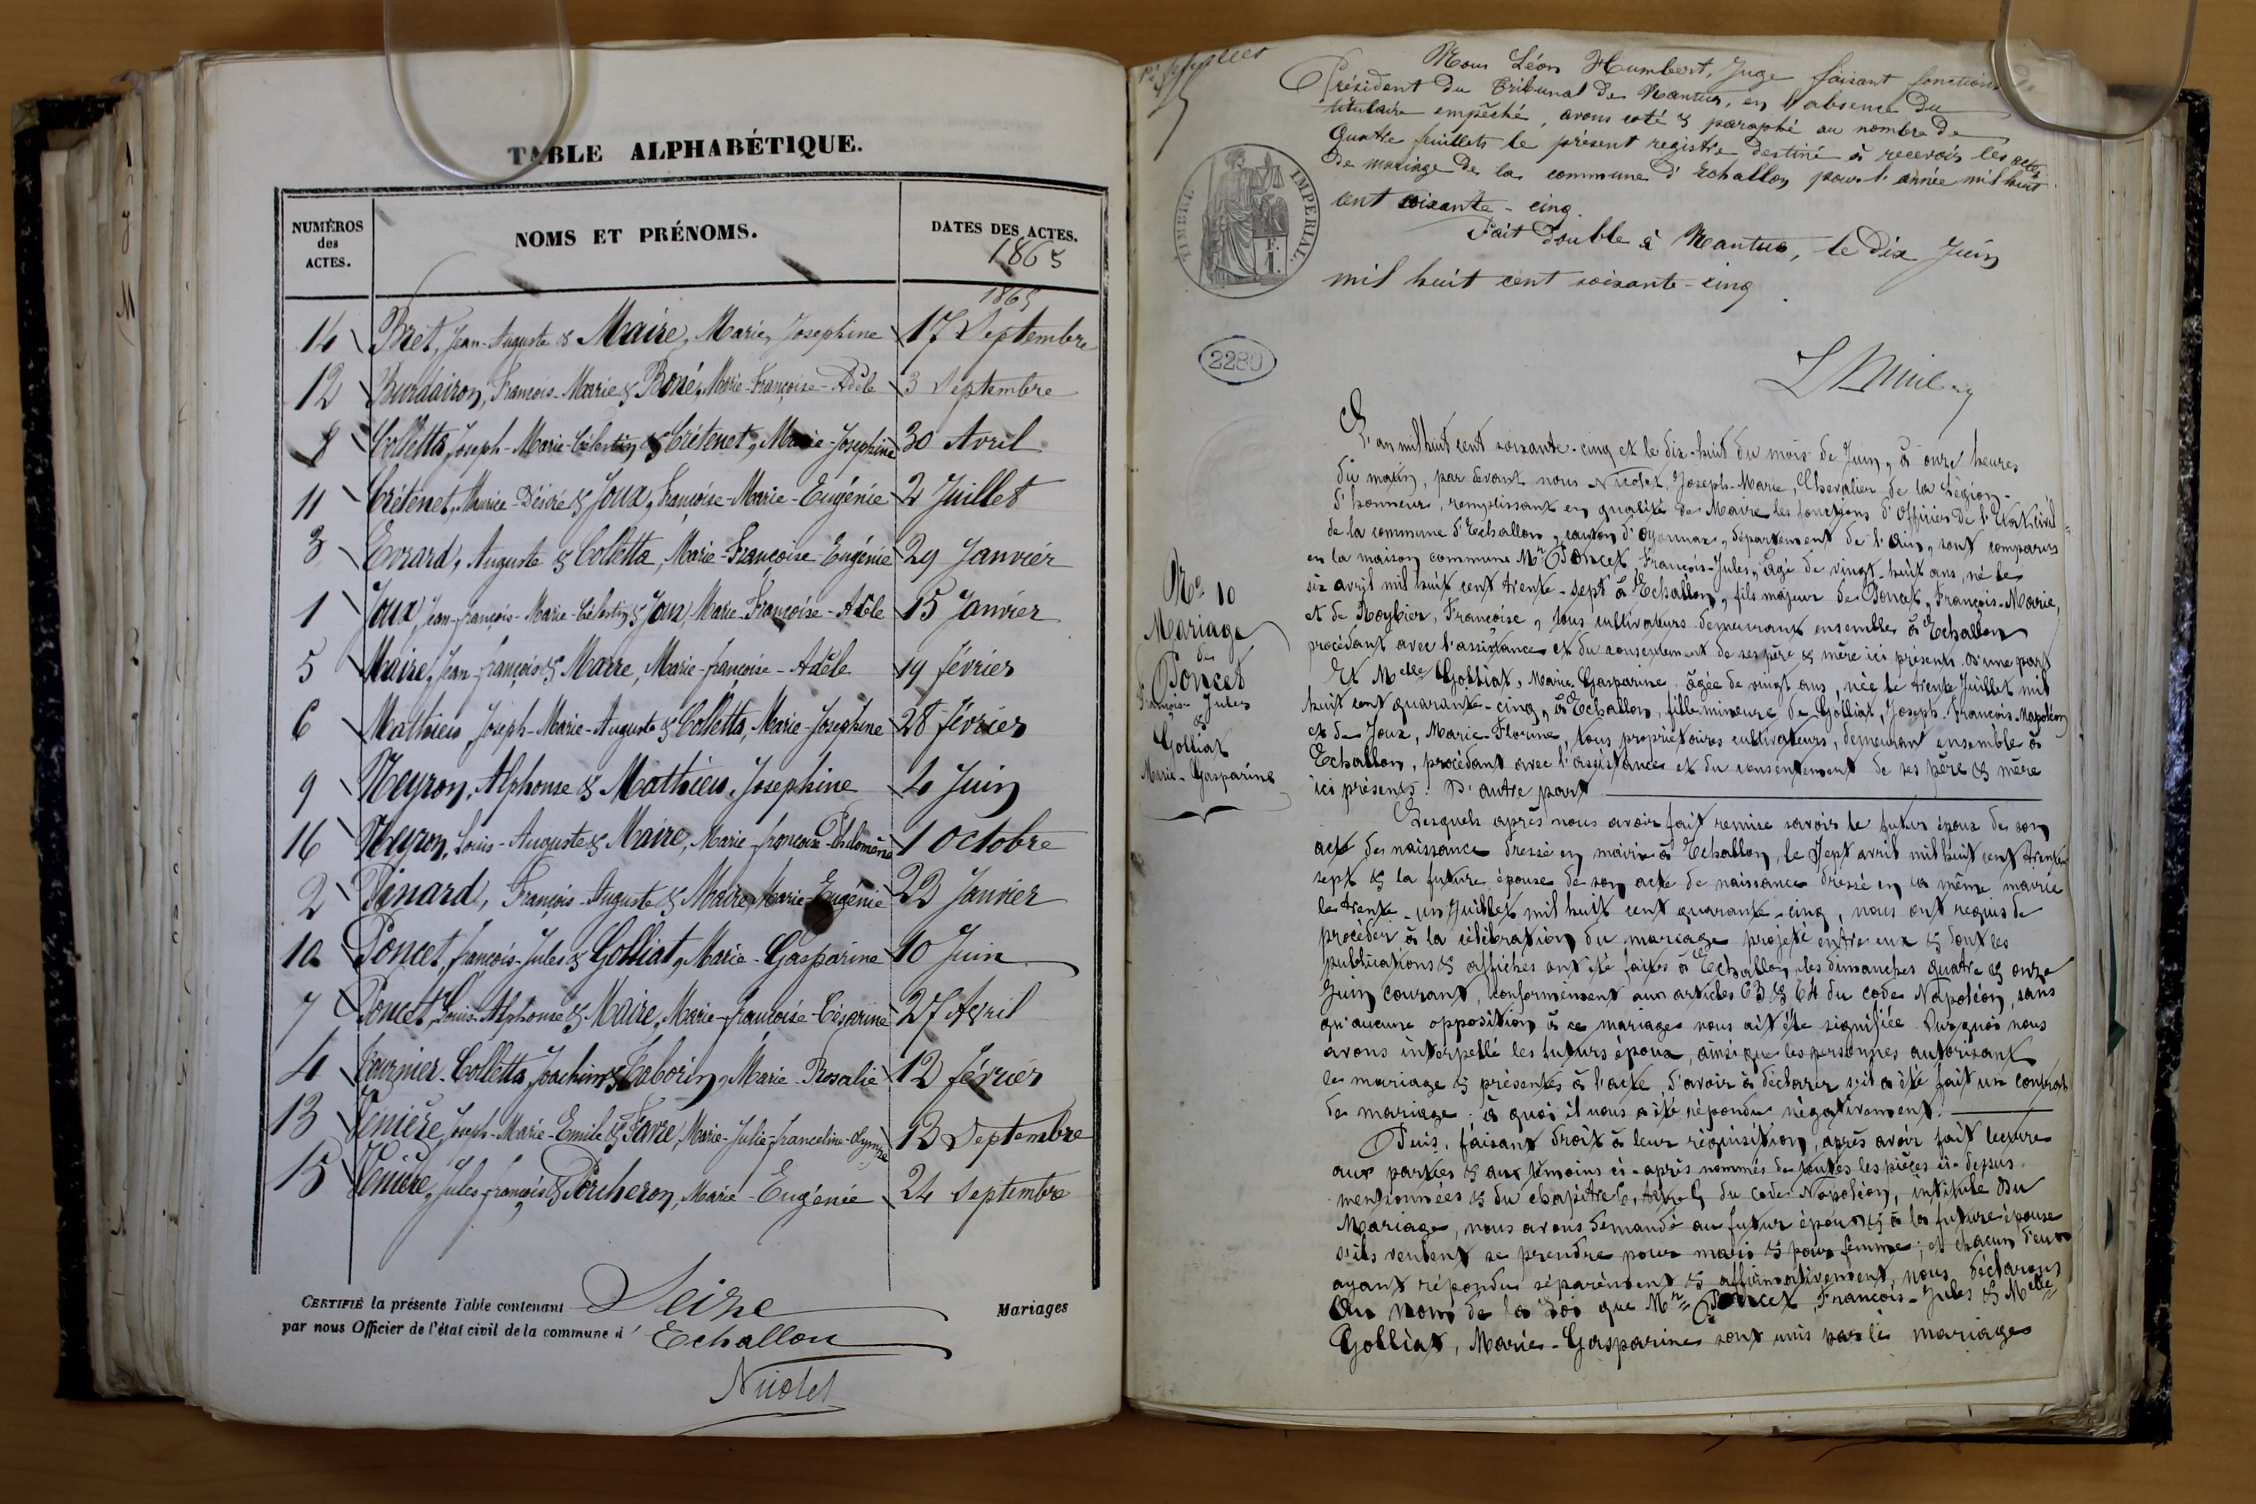 TABLE ALPHABÉTIQUE.
NUMÉROS
des
ACTES.
NOMS ET PRÉNOMS.
DATES DES ACTES.
1865
1865
14 Bret, Jean-Auguste & Maire, Marie, Josephine 17 Septembre
12 Burdairon, François-Marie & Boné, Marie-Françoise-Adèle 3 Septembre
8 Colletta Joseph-Marie-Célestin & Crétenet, Marie-Josephine 30 Avril
11 Crétenet, Maurice-Désiré & Joux, Françoise-Marie-Eugénie 2 Juillet
3 Evrard, Auguste & Colletta, Marie-Françoise-Eugénie 29 Janvier
1 Joux, Jean-françois-Marie-Célestin & Joux, Marie-Françoise-Adèle 15 Janvier
5 Maire, Jean-françois & Maire, Marie-françoise-Adèle 19 février
6 Mathieu Joseph-Marie-Auguste & Colletta, Marie-Josephine 28 février
9 Neyron, Alphonse & Mathieu, Josephine 4 Juin
16 Neyron, Louis-Auguste & Maire, Marie-françoise-Philomène 1 Octobre
2 Pinard, François-Auguste & Maire, Marie-Eugénie 22 Janvier
10 Poncet, françois-Jules & Golliat, Marie-Gasparine 10 Juin
7 Poncet, Louis-Alphonse & Maire, Marie-françoise-Césarine 27 Avril
4 Tournier-Colletta, Joachim & Taborin, Marie-Rosalie 12 février
13 Venière, Joseph-Marie-Emile & Favre, Marie-Julie-franceline- 13 Septembre
15 Venière, Jules-françois & Porcheron, Marie-Eugénie 24 Septembre
CERTIFIÉ la présente Table contenant Seize Mariages
par nous Officier de l'état civil de la commune d' Echallon
Nicolet
Nous Léon Humbert, Juge faisant fonctions de
Président du Tribunal de Nantua, en l'absence du
titulaire empêché, avons coté & paraphé au nombre de
quatre feuillets le présent registre destiné à recevoir les actes
de mariage de la commune d'Echallon pour l'année mil huit
cent soixante-cinq.
Fait double à Nantua, le dix Juin
mil huit cent soixante-cinq.
TIMBRE IMPÉRIAL.
2280
L'an mil huit cent soixante-cinq et le dix-huit du mois de Juin, à onze heures
du matin, par devant nous Nicolet, Joseph-Marie, Chevalier de la Légion-
d'honneur, remplissant en qualité de Maire les fonctions d'Officier de l'Etat civil
de la commune d'Echallon, canton d'Oyonnax, département de l'Ain, sont comparus
en la maison commune Mr Poncet, François-Jules, âgé de vingt-huit ans, né le
six avril mil huit cent trente-sept à Echallon, fils majeur de Poncet, François-Marie,
et de Roybier, Françoise, tous cultivateurs demeurant ensemble à Echallon
procédant avec l'assistance et du consentement de ses père & mère ici présents. D'une part
Et Melle Golliat, Marie-Gasparine âgée de vingt ans, née le trente Juillet mil
huit cent quarante-cinq, à Echallon, fille mineure de Golliat, Joseph-François-Napoléon
et de Joux, Marie-Florine, tous propriétaires cultivateurs, demeurant ensemble à
Echallon, procédant avec l'assistance et du consentement de ses père & mère
ici présents. D'autre part
No 10
Mariage
de
Poncet
François Jules
&
Golliat
Marie-Gasparine
Lesquels après nous avoir fait remise savoir le futur époux de son
acte de naissance dressé en mairie à Echallon, le sept avril mil huit cent trente
sept & la future épouse de son acte de naissance dressé en la même mairie
le trente-un Juillet mil huit cent quarante-cinq, nous ont requis de
procéder à la célébration du mariage projeté entre eux & dont les
publications & affiches ont été faites à Echallon, les dimanches quatre & onze
Juin courant, conformément aux articles 63 & 64 du code Napoléon, sans
qu'aucune opposition à ce mariage nous ait été signifiée. Sur quoi nous
avons interpellé les futurs époux, ainsi que les personnes autorisant
le mariage & présentes à l'acte, d'avoir à déclarer s'il a été fait un contrat
de mariage; à quoi il nous a été répondu négativement.
Puis, faisant droit à leur réquisition, après avoir fait lecture
aux parties & aux témoins ci-après nommés de toutes les pièces ci-dessus
mentionnées & du chapitre 6, titre 5 du code Napoléon, intitulé Du
Mariage, nous avons demandé au futur époux & à la future épouse
s'ils veulent se prendre pour mari & pour femme; et chacun d'eux
ayant répondu séparément & affirmativement, nous déclarons
Au nom de la loi que Mr Poncet, François-Jules & Melle
Golliat, Marie-Gasparine sont unis par le mariage